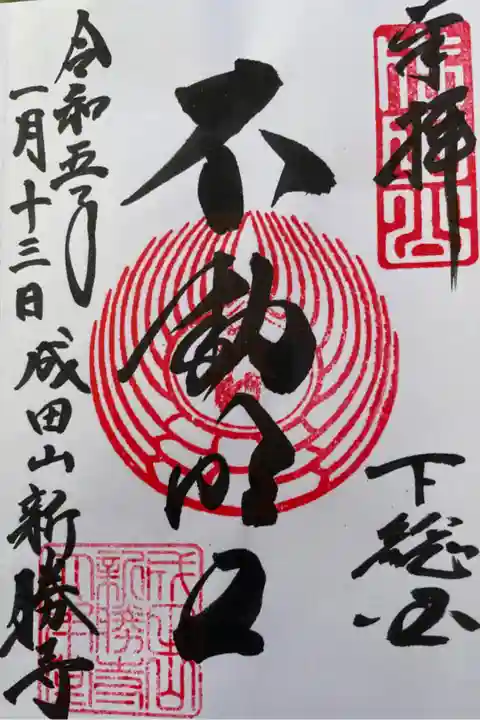 奉拝
下総国
不動明王
令和五年
一月十三日成田山新勝寺
成田山
新勝寺